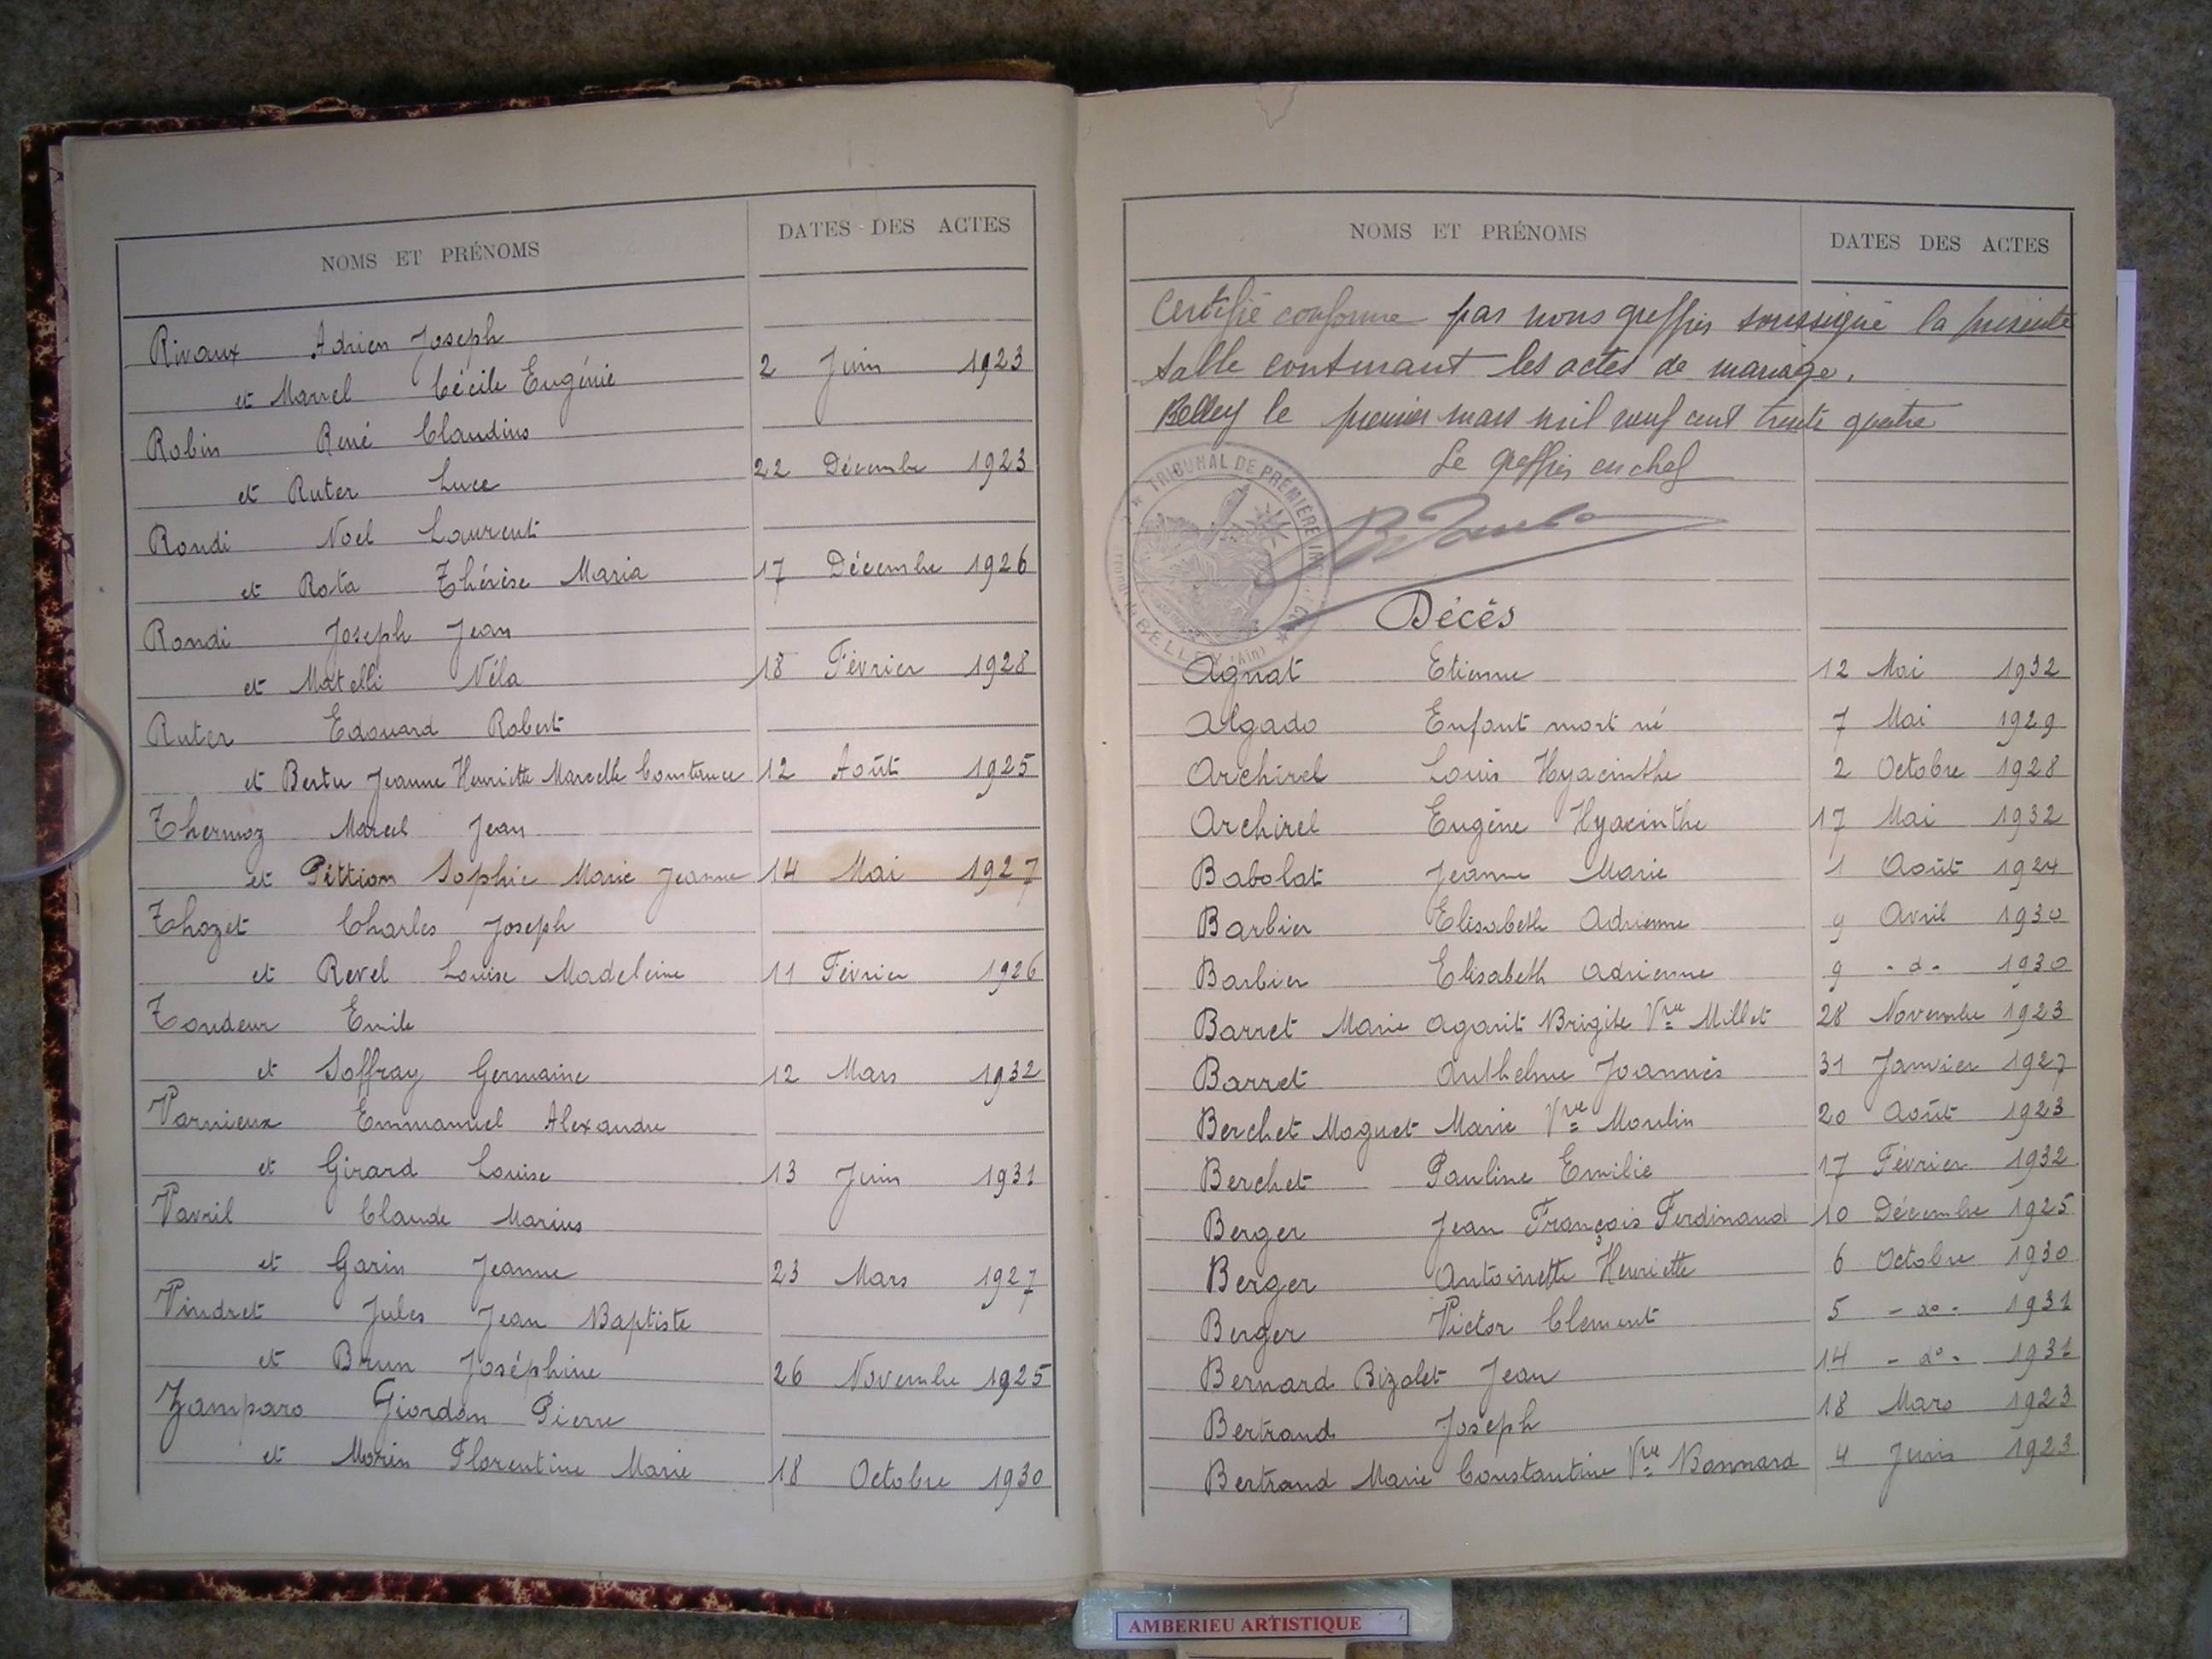 NOMS ET PRÉNOMS
DATES DES ACTES
Rivaux Adrien Joseph
et Marrel Cécile Eugénie 2 Juin 1923
Robin René Claudius
et Ruter Luce 22 Décembre 1923
Rondi Noel Laurent
et Rota Thérèse Maria 17 Décembre 1926
Rondi Joseph Jean
et Matelli Néla 18 Février 1928
Ruter Edouard Robert
et Bertu Jeanne Henriette Marcelle Constance 12 Août 1925
Thermoz Marcel Jean
et Pittion Sophie Marie Jeanne 14 Mai 1927
Thozet Charles Joseph
et Revel Louise Madeleine 11 Février 1926
Tondeur Emile
et Soffray Germaine 12 Mars 1932
Varnieux Emmanuel Alexandre
et Girard Louise 13 Juin 1931
Vavril Claude Marius
et Garin Jeanne 23 Mars 1927
Vindret Jules Jean Baptiste
et Brun Joséphine 26 Novembre 1925
Zamparo Giordan Pierre
et Morin Florentine Marie 18 Octobre 1930
NOMS ET PRÉNOMS
DATES DES ACTES
Certifié conforme par nous greffier soussigné la présente
table contenant les actes de mariage.
Belley le premier mars mil neuf cent trente quatre
Le greffier en chef
TRIBUNAL DE PREMIÈRE
BELLEY (Ain)
Décès
Agnat Etienne 12 Mai 1932
Algado Enfant mort né 7 Mai 1929
Archirel Louis Hyacinthe 2 Octobre 1928
Archirel Eugène Hyacinthe 17 Mai 1932
Babolat Jeanne Marie 1 Août 1924
Barbier Elisabeth Adrienne 9 Avril 1930
Barbier Elisabeth Adrienne 9 - d° - 1930
Barret Marie Agarit Brigite Vve Millet 28 Novembre 1923
Barret Anthelme Joannès 31 Janvier 1927
Berchet Moguet Marie Vve Moulin 20 Août 1923
Berchet Pauline Emilie 17 Février 1932
Berger Jean François Ferdinand 10 Décembre 1925
Berger Antoinette Henriette 6 Octobre 1930
Berger Victor Clement 5 - d° - 1931
Bernard Bizolet Jean 14 - d° - 1931
Bertrand Joseph 18 Mars 1923
Bertrand Marie Constantine Vve Bonnard 4 Juin 1923
AMBERIEU ARTISTIQUE